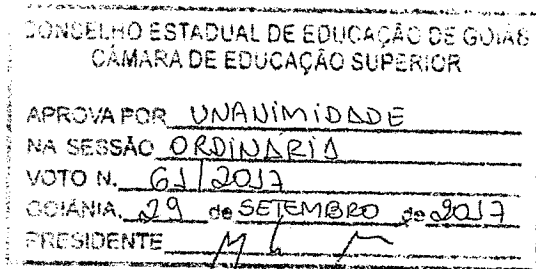 CONSELHO ESTADUAL DE EDUCAÇÃO DE GOIÁS
CÂMARA DE EDUCAÇÃO SUPERIOR
APROVA POR UNANIMIDADE
NA SESSÃO ORDINÁRIA
VOTO N. 61/2017
GOIÂNIA, 29 de SETEMBRO de 2017
PRESIDENTE